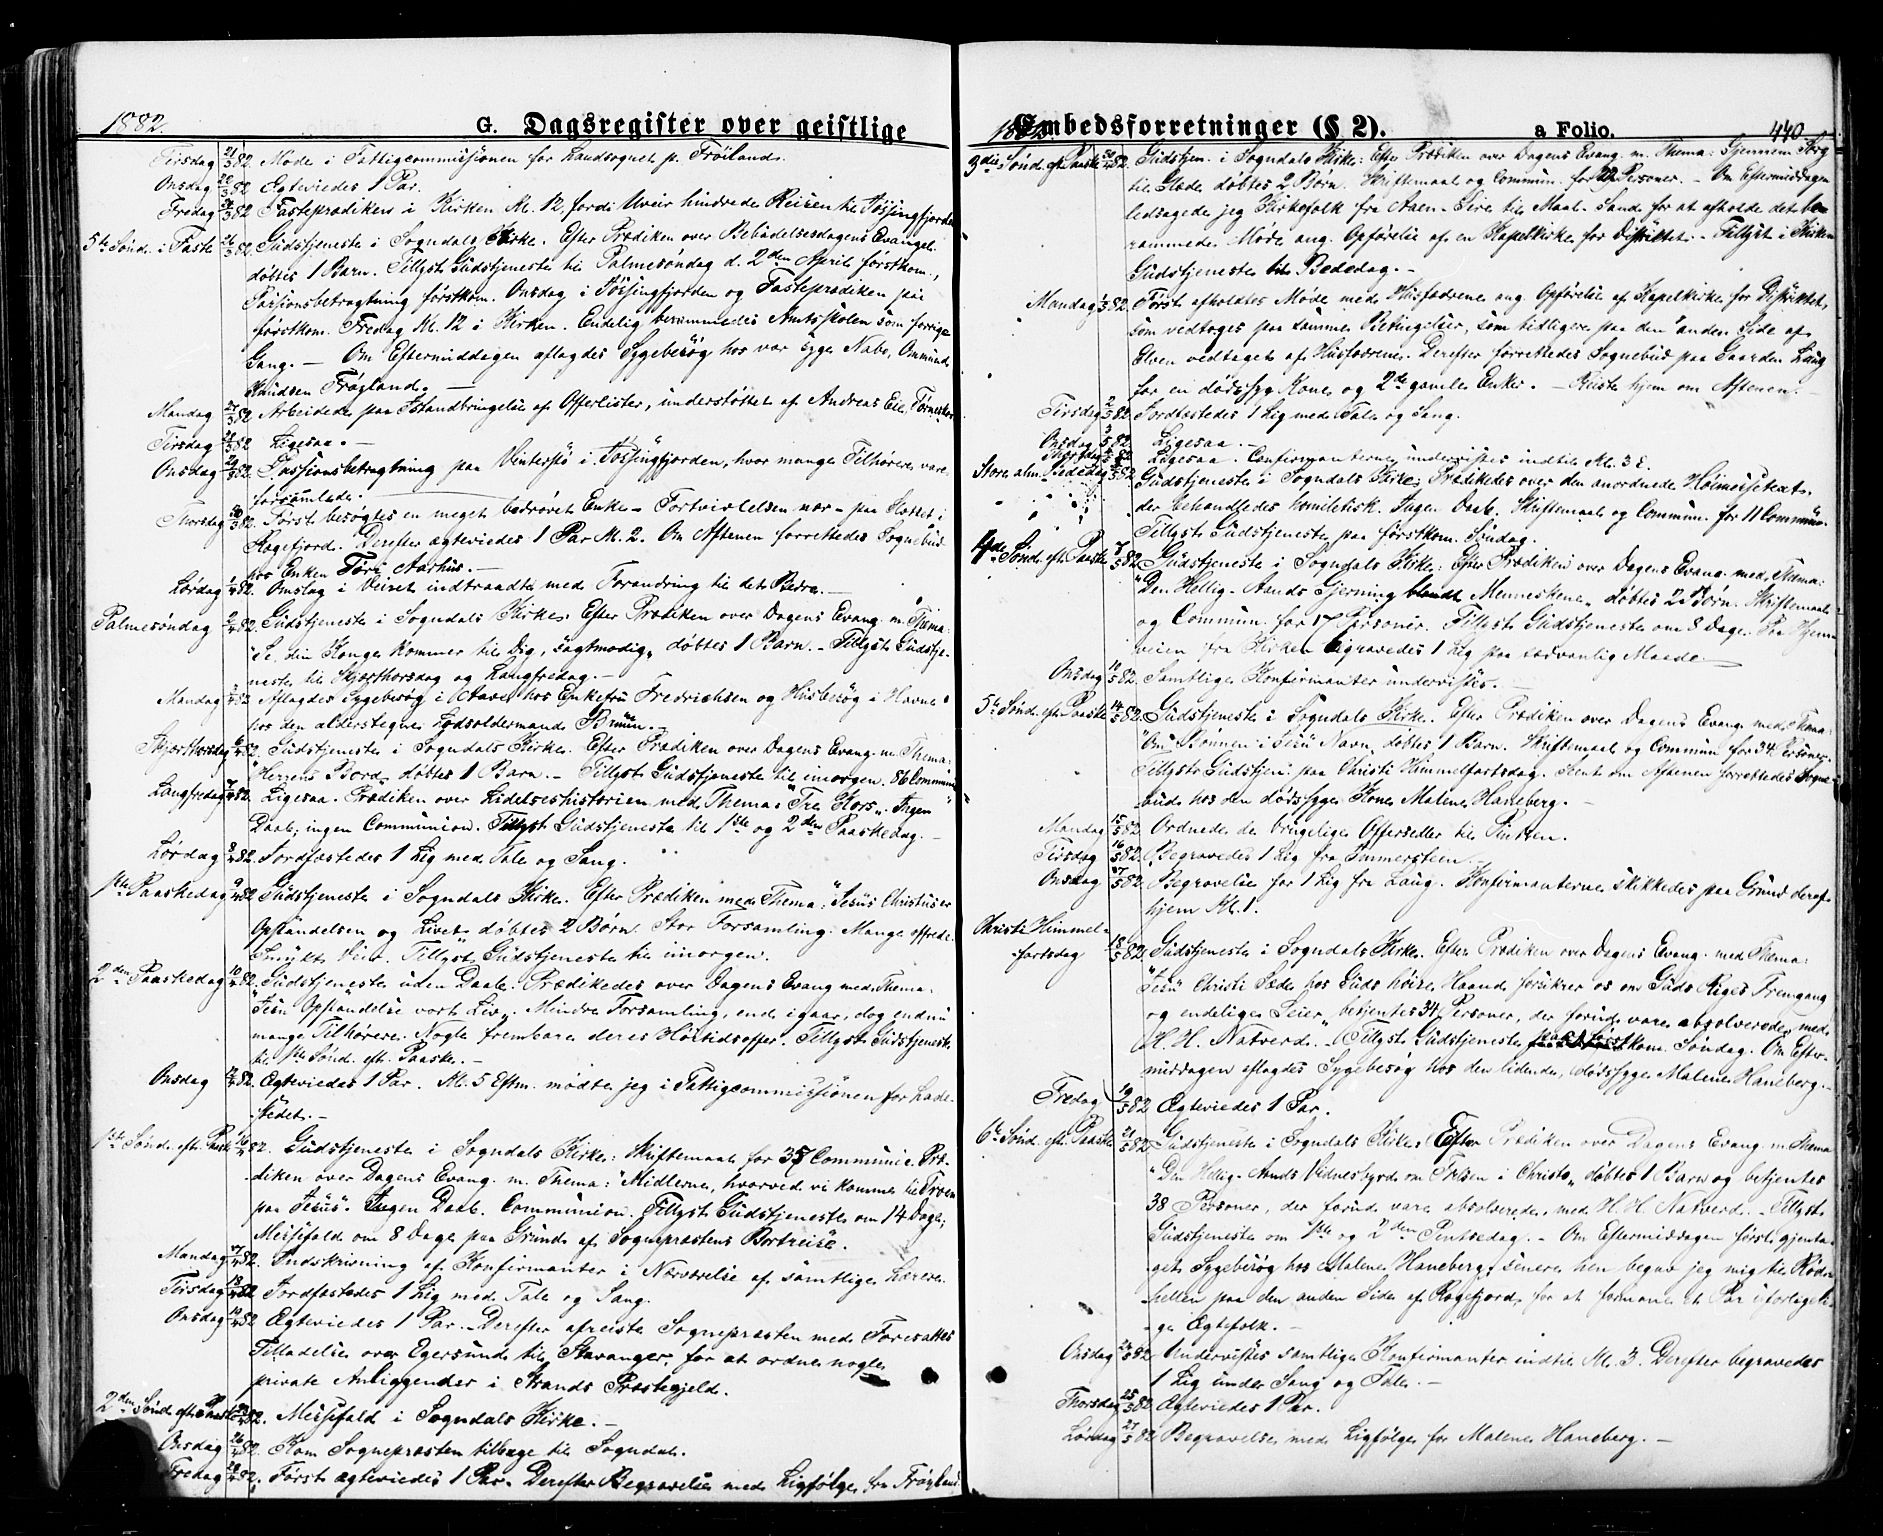 1882.
G. Dagsregister over geistlige
Tirsdag 21/3 82. Møde i Fattigcommissionen for Landsognet p. Frøiland.
Onsdag 22/3 82 Egteviedes 1 Par.
Fredag 24/3 82 Fasteprædiken i Kirken Kl. 12, fordi Uveir hindrede Reisen til Jøssingfjorden
5te Sønd. i Faste 26/3 82. Gudstjeneste i Sogndals Kirke. Efter Prædiken over Bebudelsesdagens Evangel.
døbtes 1 Barn. Tillyst Gudstjeneste til Palmesøndag d. 2den April førstkom.,
Passionsbetragtning førstkom. Onsdag i Jøssingfjorden og Fasteprædiken paa
førstkom. Fredag Kl. 12 i Kirken. Endelig berammedes Amtsskolen som forrige
Gang. — Om Eftermiddagen aflagdes Sygebesøg hos vor syge Nabo, Ommund
Knudsen Frøyland. —
Mandag 27/3 82 Arbeidede paa Istandbringelse af Offerlister, understøttet af Andreas Eie,
Tirsdag 28/3 82 Ligesaa. —
Onsdag 29/3 82. Passionsbetragtning paa Vintersjø i Jøssingfjorden, hvor mange Tilhørere vare
forsamlede. —
Thorsdag 30/3 82. Først besøgtes en meget bedrøvet Enke — Fortvivlelsen nær — paa Slottet i
Rægefjord. Derefter ægteviedes 1 Par Kl. 2. Om Aftenen forrettedes Sognebud
hos Enken Tori Aarhus. —
Lørdag 1/4 82. Omslag i Veiret indtraadte med Forandring til det Bedre. —
Palmesøndag 2/4 82. Gudstjeneste i Sogndals Kirke. Efter Prædiken over Dagens Evang. m. Thema:
"Se, din Konge kommer til Dig, sagtmodig" døbtes 1 Barn. — Tillyst Gudstje-
neste til Skjærthorsdag og Langfredag. —
Mandag 3/4 82 Aflagdes Sygebesøg i Aaven hos Enkefru Fredrichsen og Husbesøg i Havnen
hos den alderstegne Lodsoldermand Bruun. —
Skjærthorsdag 6/4 82. Gudstjeneste i Sogndals Kirke. Efter Prædiken over Dagens Evang. m. Thema:
"Herrens Bord" døbtes 1 Barn. — Tillyst Gudstjeneste til imorgen. 86 Commun.
Langfredag 7/4 82. Ligesaa. Prædiken over Lidelseshistorien med Thema: "Tre Kors". Ingen
Daab; ingen Communion. Tillyst Gudstjeneste til 1ste og 2den Paaskedag. —
Lørdag 8/4 82. Jordfæstedes 1 Lig med Tale og Sang.
1ste Paaskedag 9/4 82 Gudstjeneste i Sogndals Kirke. Efter Prædiken med Thema: "Jesus Christus er
Opstandelsen og Livet" døbtes 2 Børn. Stor Forsamling. Mange offrede.
Smukt Veir. Tillyst Gudstjeneste til imorgen.
2den Paaskedag 10/4 82. Gudstjeneste uden Daab. Prædikedes over Dagens Evang. med Thema:
"Jesu Opstandelse vort Liv". Mindre Forsamling, end igaar, dog endnu
mange Tilhørere. Nogle frembare deres Høitidsoffer. Tillyst Gudstjeneste
til 1ste Sønd. eft. Paaske. —
Onsdag 12/4 82. Ægteviedes 1 Par. Kl. 5 Eftm. mødte jeg i Fattigcommissionen for Lade-
stedet. —
1ste Sønd. eft. Paaske 16/4 82. Gudstjeneste i Sogndals Kirke: Skriftemaal for 35 Communic. Præ-
diken over Dagens Evang. m. Thema: "Midlerne, hvorved vi komme til Troen
paa Jesus". Ingen Daab. Communion. Tillyst Gudstjeneste om 14 Dage;
Messefald om 8 Dage paa Grund af Sognepræstens Bortreise.
Mandag 17/4 82. Indskrivning af Konfirmanter i Nærværelse af samtlige Lærere.
Tirsdag 18/4 82 Jordfæstedes 1 Lig med Tale og Sang.
Onsdag 19/4 82 Ægteviedes 1 Par. — Derefter afreiste Sognepræsten med Foresattes
Tilladelse over Egersund til Stavanger, for at ordne nogle
private Anliggender i Strands Præstegjeld.
2den Sønd. eft. Paaske 23/4 82. Messefald i Sogndals Kirke. —
Onsdag 26/4 82. Kom Sognepræsten tilbage til Sogndal.
Fredag 28/4 82. Først ægteviedes 1 Par. Derefter Begravelse med Ligfølge fra Frøyland
1882.
Embedsforretninger (§ 2).
a Folio.
440.
3die Sønd. eft. Paaske 30/4 82. Gudstjen. i Sogndals Kirke: Efter Prædiken over Dagens Evang. m. Thema: Gjennem Sorg
til Glæde døbtes 2 Børn. Skriftemaal og Commun. for 22 Personer. — Om Eftermiddagen
ledsagede jeg Kirkefolk fra Aaen-Sire til Maal-Sand for at afholde det be-
rammede Møde ang. Opførelse af en Kapelkirke for Distriktet. — Tillyst i Kirken
Gudstjeneste til Bededag. —
Mandag 1/5 82. Først afholdtes Møde med Husfædrene ang. Opførelse af Kapelkirke for Distriktet,
som vedtoges paa samme Betingelser, som tidligere paa den anden Side af
Elven vedtaget af Husfædrene. Derefter forrettedes Sognebud paa Gaarden Laug
for en dødssyg Kone og 2de gamle Enker. — Reiste hjem om Aftenen. —
Tirsdag 2/5 82. Jordfæstedes 1 Lig med Tale og Sang.
Onsdag 3/5 82. Ligesaa. —
Thorsdag 4/5 82. Ligesaa. Confirmanterne undervistes indtil Kl. 3 E.
Store alm. Bededag 5/5 82. Gudstjeneste i Sogndals Kirke: Prædikedes over den anordnede Høimessetext,
der behandledes homiletisk. Ingen Daab. Skriftemaal og Commun. for 11 Commun.
Tillyst Gudstjeneste paa førstkom. Søndag.
4de Sønd. eft. Paaske 7/5 82. Gudstjeneste i Sogndals Kirke: Efter Prædiken over Dagens Evang. med Thema:
"Den Hellig-Aands Gjerning blandt Menneskene" døbtes 2 Børn. Skriftemaal
og Commun. for 17 Personer. Tillyst Gudstjeneste om 8 Dage. Paa Hjem-
veien fra Kirken begravedes 1 Lig paa sædvanlig Maade. —
Onsdag 10/5 82. Samtlige Konfirmanter undervistes. —
5te Sønd. eft. Paaske 14/5 82. Gudstjeneste i Sogndals Kirke. Efter Prædiken over Dagens Evang. med Thema:
"Om Bønnen i Jesu Navn" døbtes 1 Barn. Skriftemaal og Commun for 34 Personer.
Tillyst Gudstjen. paa Christi Himmelfartsdag. Sent om Aftenen forrettedes Sogne-
bud hos den dødssyge Kone Malene Haneberg. —
Mandag 15/5 82. Ordnede de brugelige Offersedler til Pintsen.
Tirsdag 16/5 82. Begravedes 1 Lig fra Immerstein. —
Onsdag 17/5 82. Begravelse for 1 Lig fra Laug. Konfirmanterne skikkedes paa Grund deraf
hjem Kl. 1.
Christi Himmel-
fartsdag 18/5 82. Gudstjeneste i Sogndals Kirke. Efter Prædiken over Dagens Evang. med Thema:
"Jesu Christi Sæde hos Guds høire Haand forsikrer os om Guds Riges Fremgang
og endelige Seier" betjentes 34 Personer, der forud vare absolverede, med
H. H. Natverd. — Tillyst Gudstjeneste førstkom. Søndag. Om Efter-
middagen aflagdes Sygebesøg hos den lidende, dødssyge Malene Haneberg. —
Fredag 19/5 82. Ægteviedes 1 Par.
6te Sønd. eft. Paaske 21/5 82. Gudstjeneste i Sogndals Kirke: Efter Prædiken over Dagens Evang. m. Thema
"Den Hellig-Aands Vidnesbyrd om Frelsen i Christo" døbtes 1 Barn og betjentes
38 Personer, der forud vare absolverede, med H. H. Natverd. — Tillyst
Gudstjeneste om 1ste og 2den Pintsedag. — Om Eftermiddagen først gjenta-
get Sygebesøg hos Malene Haneberg; senere hen begav jeg mig til
hellen paa den anden Side af Rægefjord, for at formane et Par uforligeli-
ge Ægtefolk. —
Onsdag 24/5 82. Undervistes samtlige Konfirmanter indtil Kl. 3. Derefter begravedes
1 Lig under Sang og Tale. —
Thorsdag 25/5 82. Ægteviedes 1 Par.
Lørdag 27/5 82 Begravelse med Ligfølge for Malene Haneberg. —